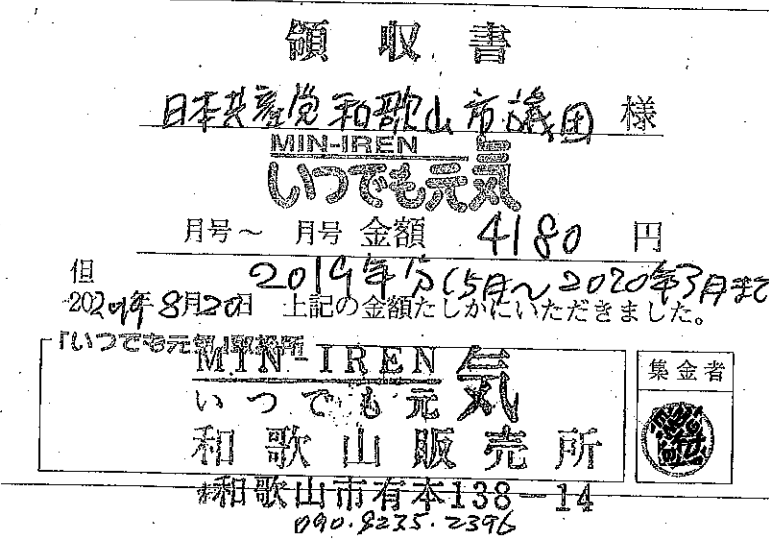 領収書
日本共産党和歌山市議団 様
MIN-IREN
いつでも元気
月号～ 月号 金額 4180 円
但 2019年分(5月～2020年3月まで
2019年8月20日 上記の金額たしかにいただきました。
「いつでも元気」取扱所
MIN-IREN 気
いつでも元
和歌山販売所
和歌山市有本138-14
090.8235.2396
集金者